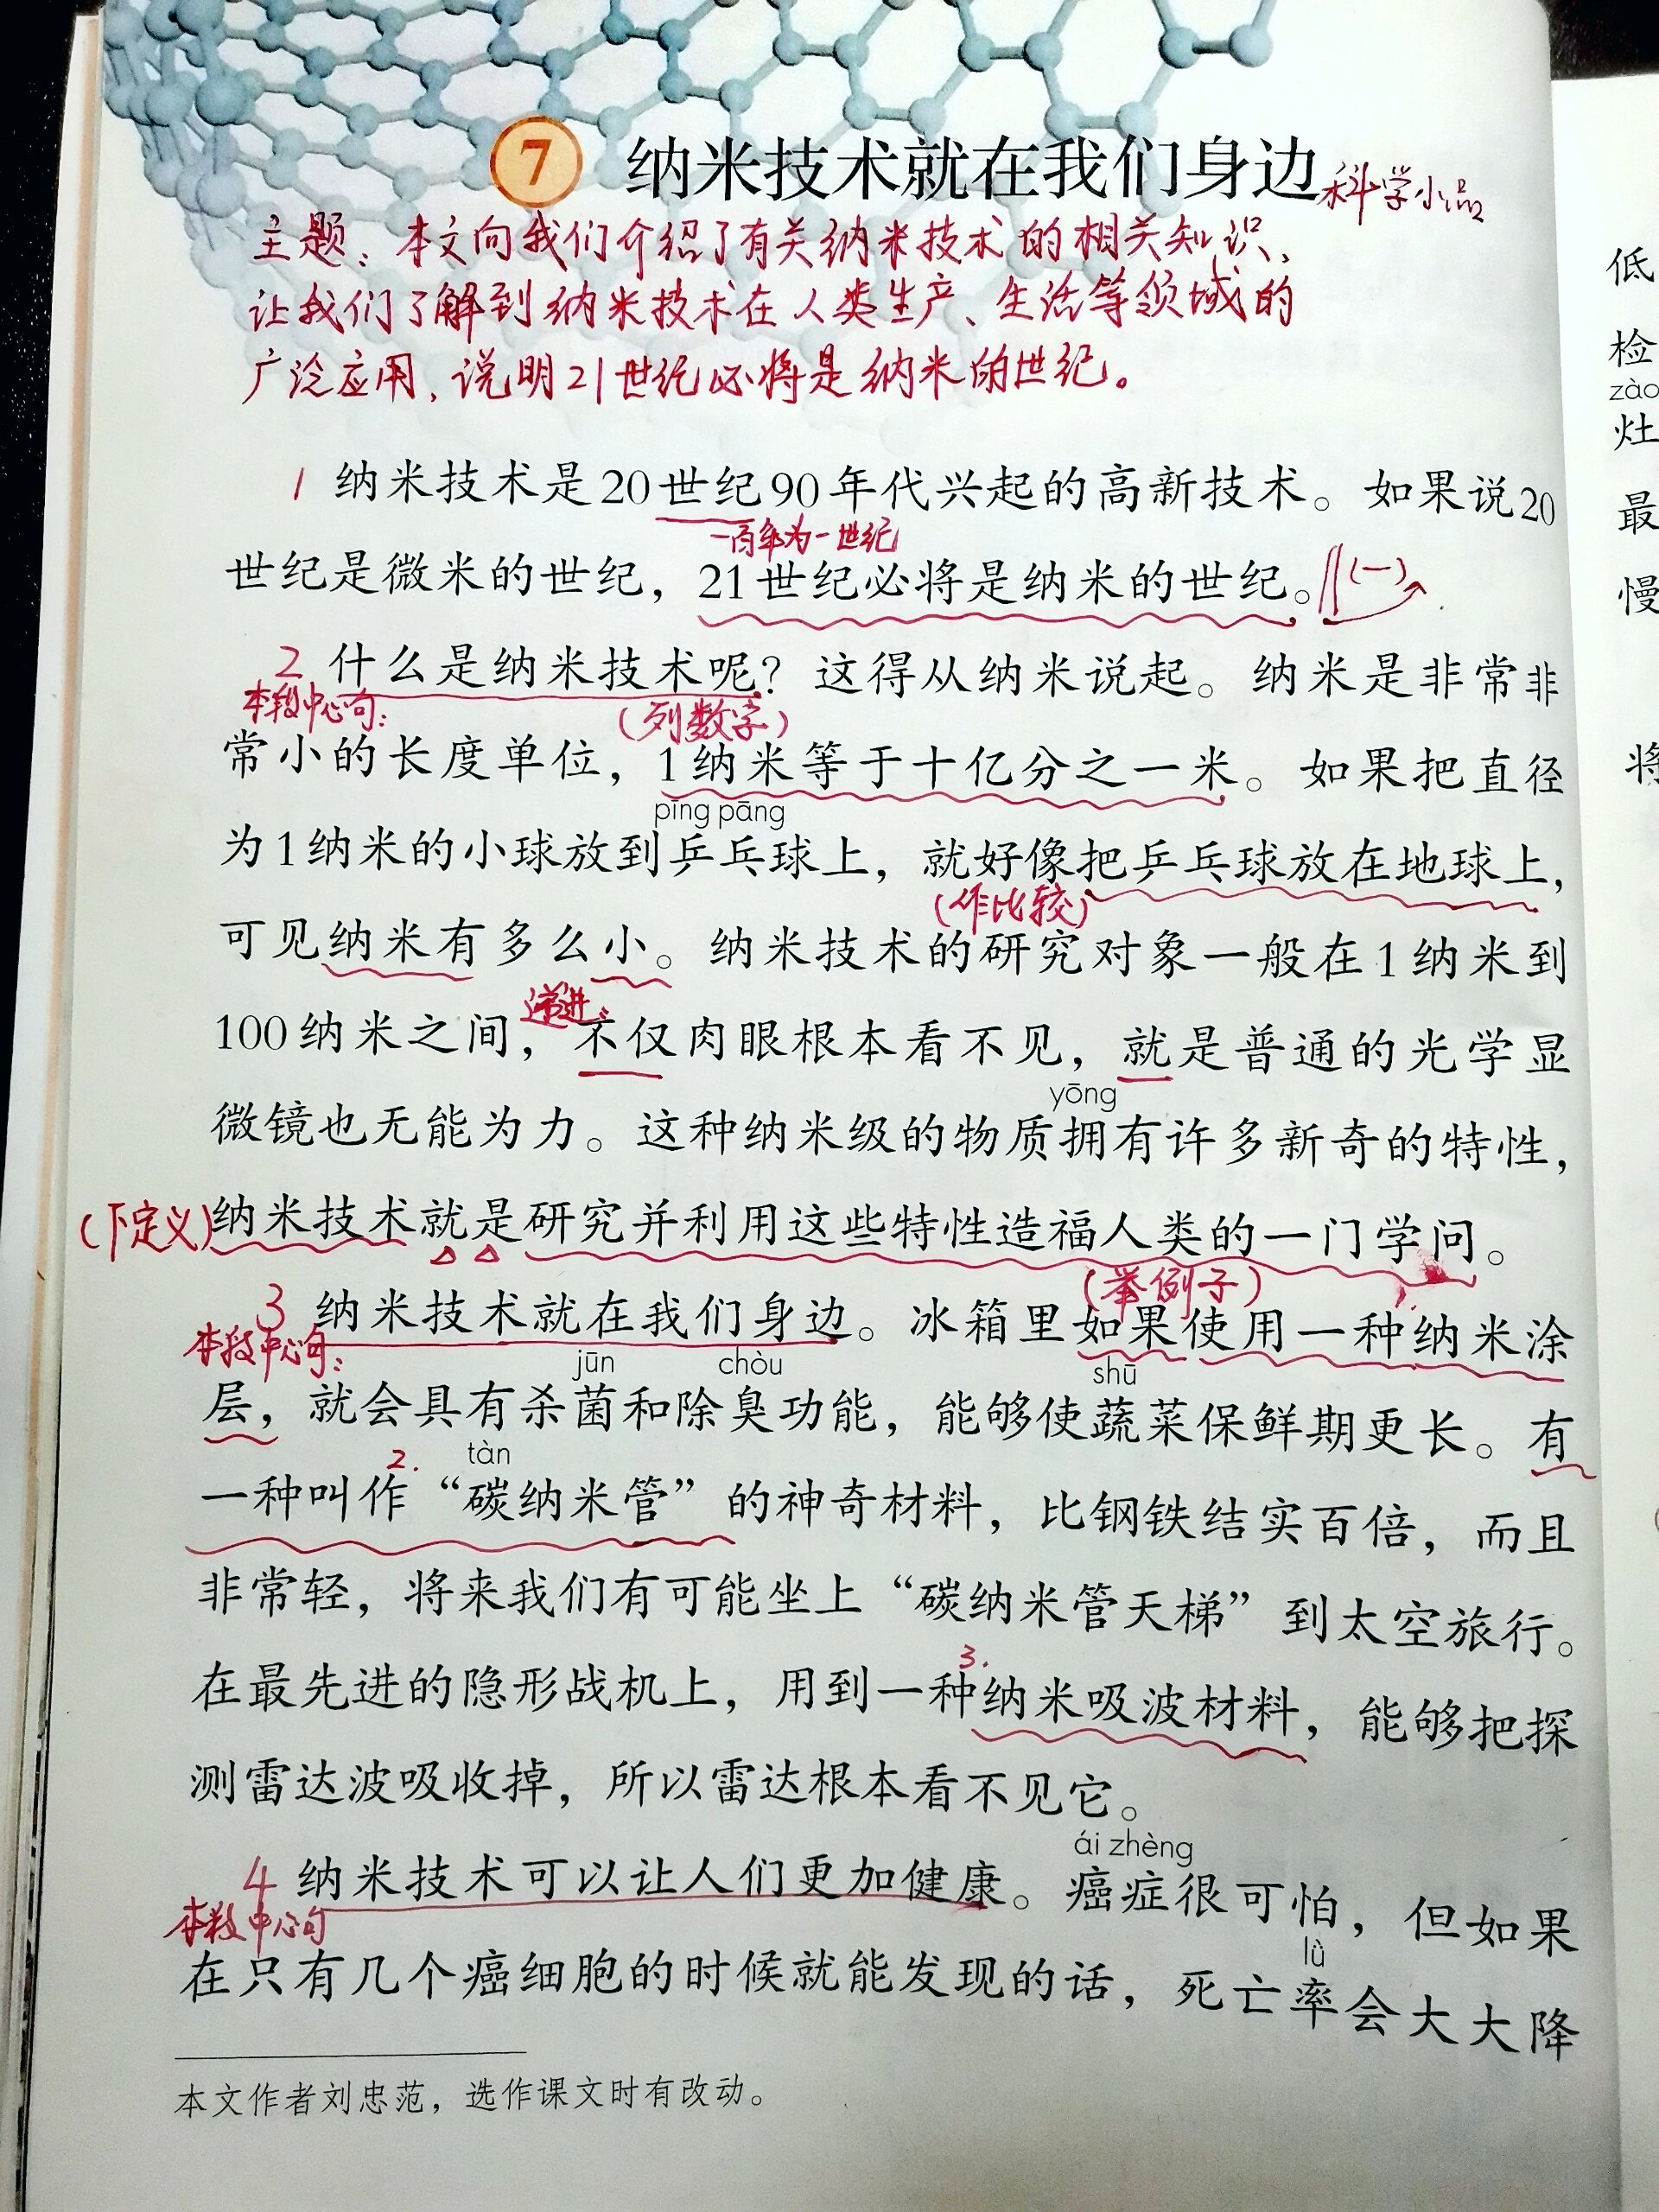 7 纳米技术就在我们身边 科学小品
主题：本文向我们介绍了有关纳米技术的相关知识，
让我们了解到纳米技术在人类生产、生活等领域的
广泛应用，说明21世纪必将是纳米的世纪。
1 纳米技术是20世纪90年代兴起的高新技术。如果说20
一百年为一世纪
世纪是微米的世纪，21世纪必将是纳米的世纪。(一)
2 什么是纳米技术呢？这得从纳米说起。纳米是非常非
本段中心句：
(列数字)
常小的长度单位，1纳米等于十亿分之一米。如果把直径
pīng pāng
为1纳米的小球放到乒乓球上，就好像把乒乓球放在地球上，
(作比较)
可见纳米有多么小。纳米技术的研究对象一般在1纳米到
递进：
100纳米之间，不仅肉眼根本看不见，就是普通的光学显
yōng
微镜也无能为力。这种纳米级的物质拥有许多新奇的特性，
(下定义)纳米技术就是研究并利用这些特性造福人类的一门学问。
(举例子)
1.
3 纳米技术就在我们身边。冰箱里如果使用一种纳米涂
本段中心句：
jūn chòu shū
层，就会具有杀菌和除臭功能，能够使蔬菜保鲜期更长。有
2. tàn
一种叫作“碳纳米管”的神奇材料，比钢铁结实百倍，而且
非常轻，将来我们有可能坐上“碳纳米管天梯”到太空旅行。
3.
在最先进的隐形战机上，用到一种纳米吸波材料，能够把探
测雷达波吸收掉，所以雷达根本看不见它。
ái zhèng
4 纳米技术可以让人们更加健康。癌症很可怕，但如果
本段中心句
lǜ
在只有几个癌细胞的时候就能发现的话，死亡率会大大降
本文作者刘忠范，选作课文时有改动。
低
检
zào
灶
最
慢
将